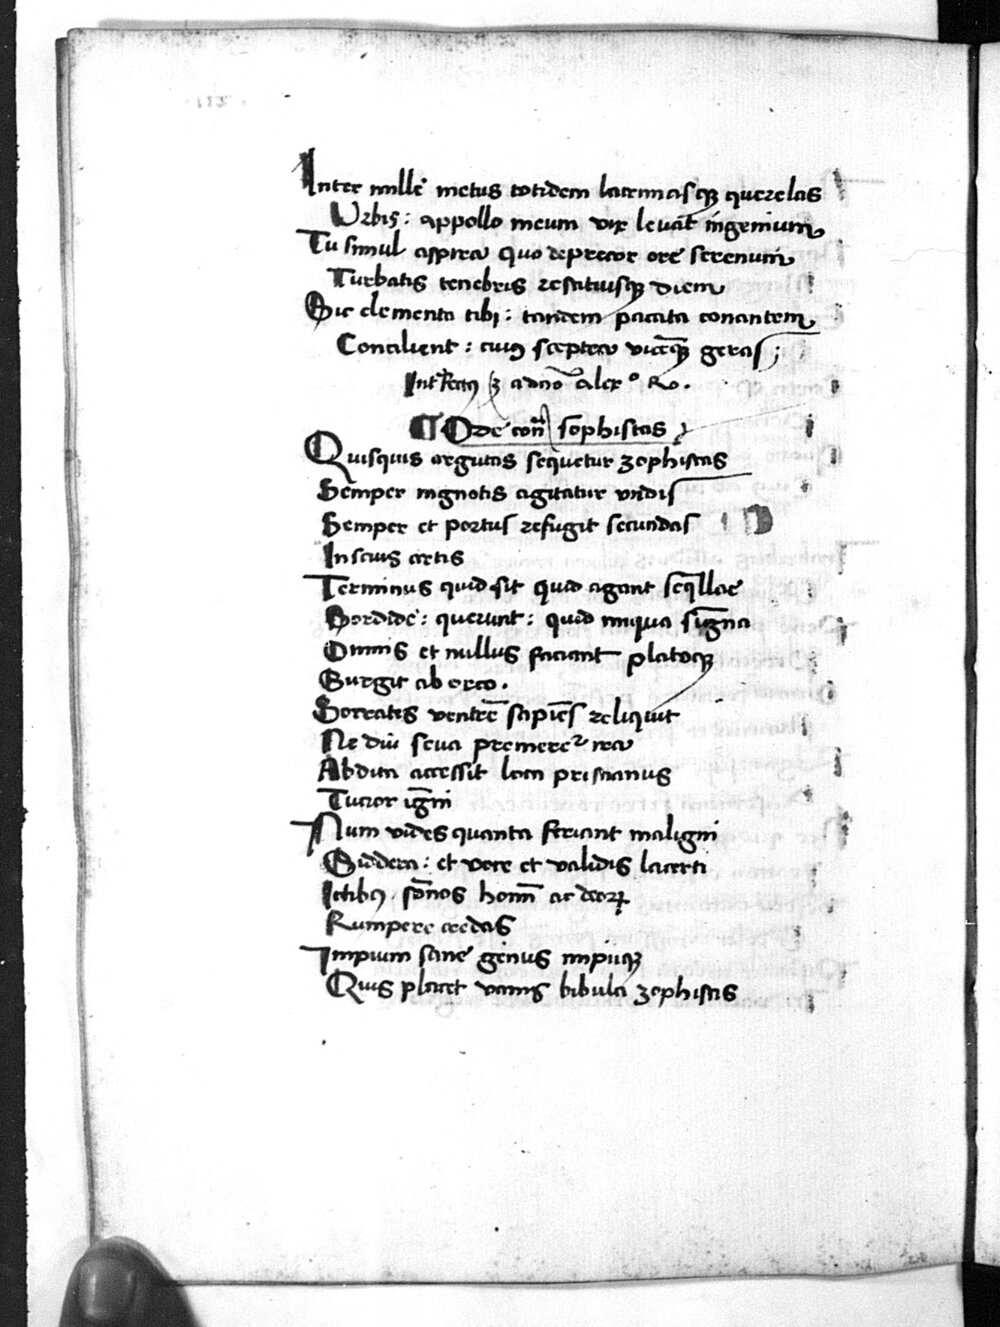 Inter mille metus totidem lacrimasqꝫ querelas
Urbis : appollo meum vix levāt ingenium
Tu simul aspira quo deprecor ore serenum
Turbatis tenebris restituisqꝫ diem
Sic clementa tibi : tandem pacata tonantem
Concilient : cuiꝰ sceptra vicēqꝫ geras ;
alex° Ro .
Ode cont̄ sophistas
Quisquis argutas sequetur zophistas
Semper ingnotis agitatur undis
Semper et portus refugit secundas
Inscius artis
Terminus quid sit quid agant seq̄llae
Sordide : querunt : quid iniqua singna
Omnis et nullus faciant platoqꝫ
Surgit ab orco .
Socrates ventrē sapiēs reliquit
Ne diu seva premeret᷑ ira
Abdita accessit loca prismanus
Tucior igni
Num vides quanta feriant maligni
Sidera : et voce et validis lacerti
Ictibꝰ sōnos homī ac deoꝝ
Rumpere credas
Impium sane genus impiiqꝫ
Quis placet vanis bibula zophistis